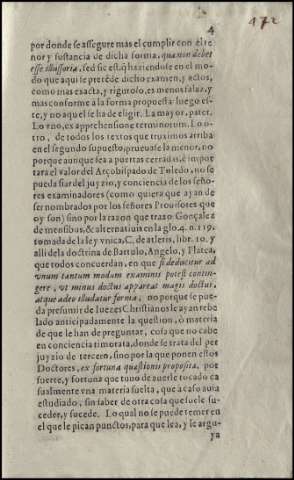 4
172
por donde se assegure más el cumplir con el te
nor y sustancia de dicha forma, quæ non debet
esse illusoria, sed sic est q̃ haziendose en el mo-
do que aqui se pretēde dicho examen, y actos,
como mas exacta, y rigurosa, es menos falaz, y
mas conforme a la forma propuesta: luego es-
te, y no aquel se ha de eligir. La mayor, patet.
Lo vno, ex apprehensione terminorum. Lo o-
tro, de todos los textos que truximos arriba
en el segundo supuesto, prueuase la menor, no
porque aunque sea a puertas cerradas, e impor
tara el valor del Arçobispado de Toledo, no se
pueda fiar del juyzio, y conciencia de los seño-
res examinadores (como quiera que ayan de
ser nombrados por los señores Prouisores que
oy son) sino por la razon que trazo Gonçalez
de mensibus, & alternatiua en la glo. 4. n. 119.
tomada de la ley vnica, C. de atletis, libr. 10. y
alli de la doctrina de Bartulo, Angelo, y Platea,
que todos concuerdan, en que si deducitur ad
vnum tantum modum examinis potest contin-
gere, vt minus doctus appareat magis doctus,
atque adeo illudatur forma, no porque se pue-
da presumir de Iuezes Christianos le ayan reue-
lado anticipadamente la question, o materia
de que le han de preguntar, cosa que no cabe
en conciencia timorata, donde se trata del per
juyzio de tercero, sino por la que ponen estos
Doctores, ex fortuna quæstionis proposita, por
suerte, y fortuna que tuuo de auerle tocado ca
sualmente vna materia suelta, que à caso aura
estudiado, sin saber de otra cosa que suele su-
ceder, y sucede. Lo qual no se puede temer en
el que le pican punctos, para que lea, y le argu-
ya